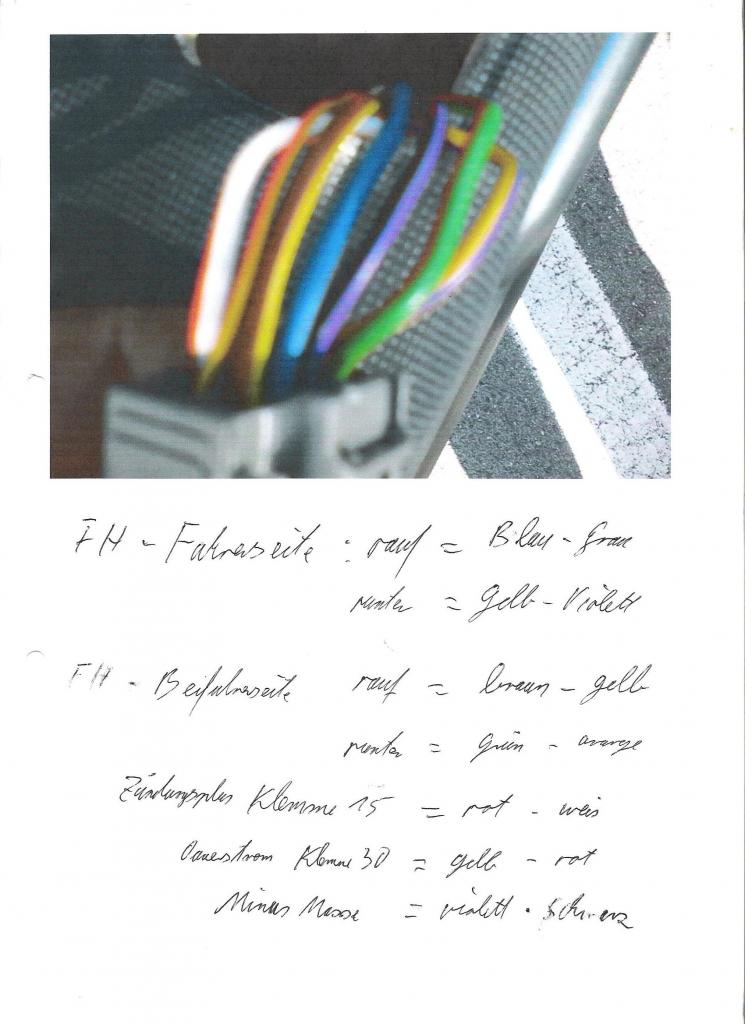 FH - Fahrerseite : rauf = Blau - grau
runter = gelb - Violett
FH - Beifahrerseite rauf = braun - gelb
runter = grün - orange
Zündungsplus Klemme 15 = rot - weis
Dauerstrom Klemme 30 = gelb - rot
Minus Masse = violett - schwarz